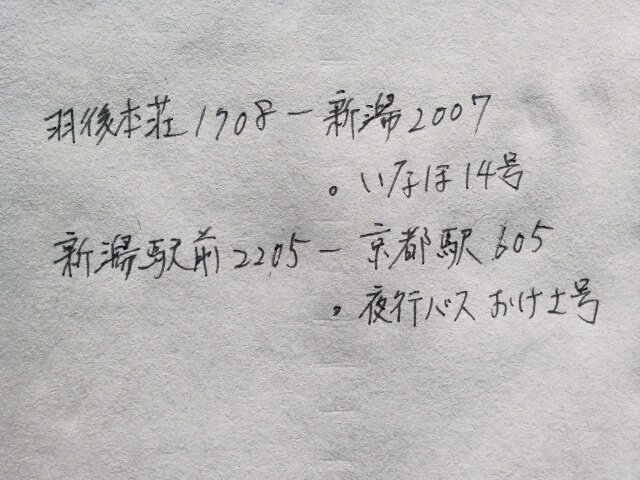 羽後本荘1708－新潟2007
。いなほ14号
新潟駅前2205－京都駅605
。夜行バスおけさ号